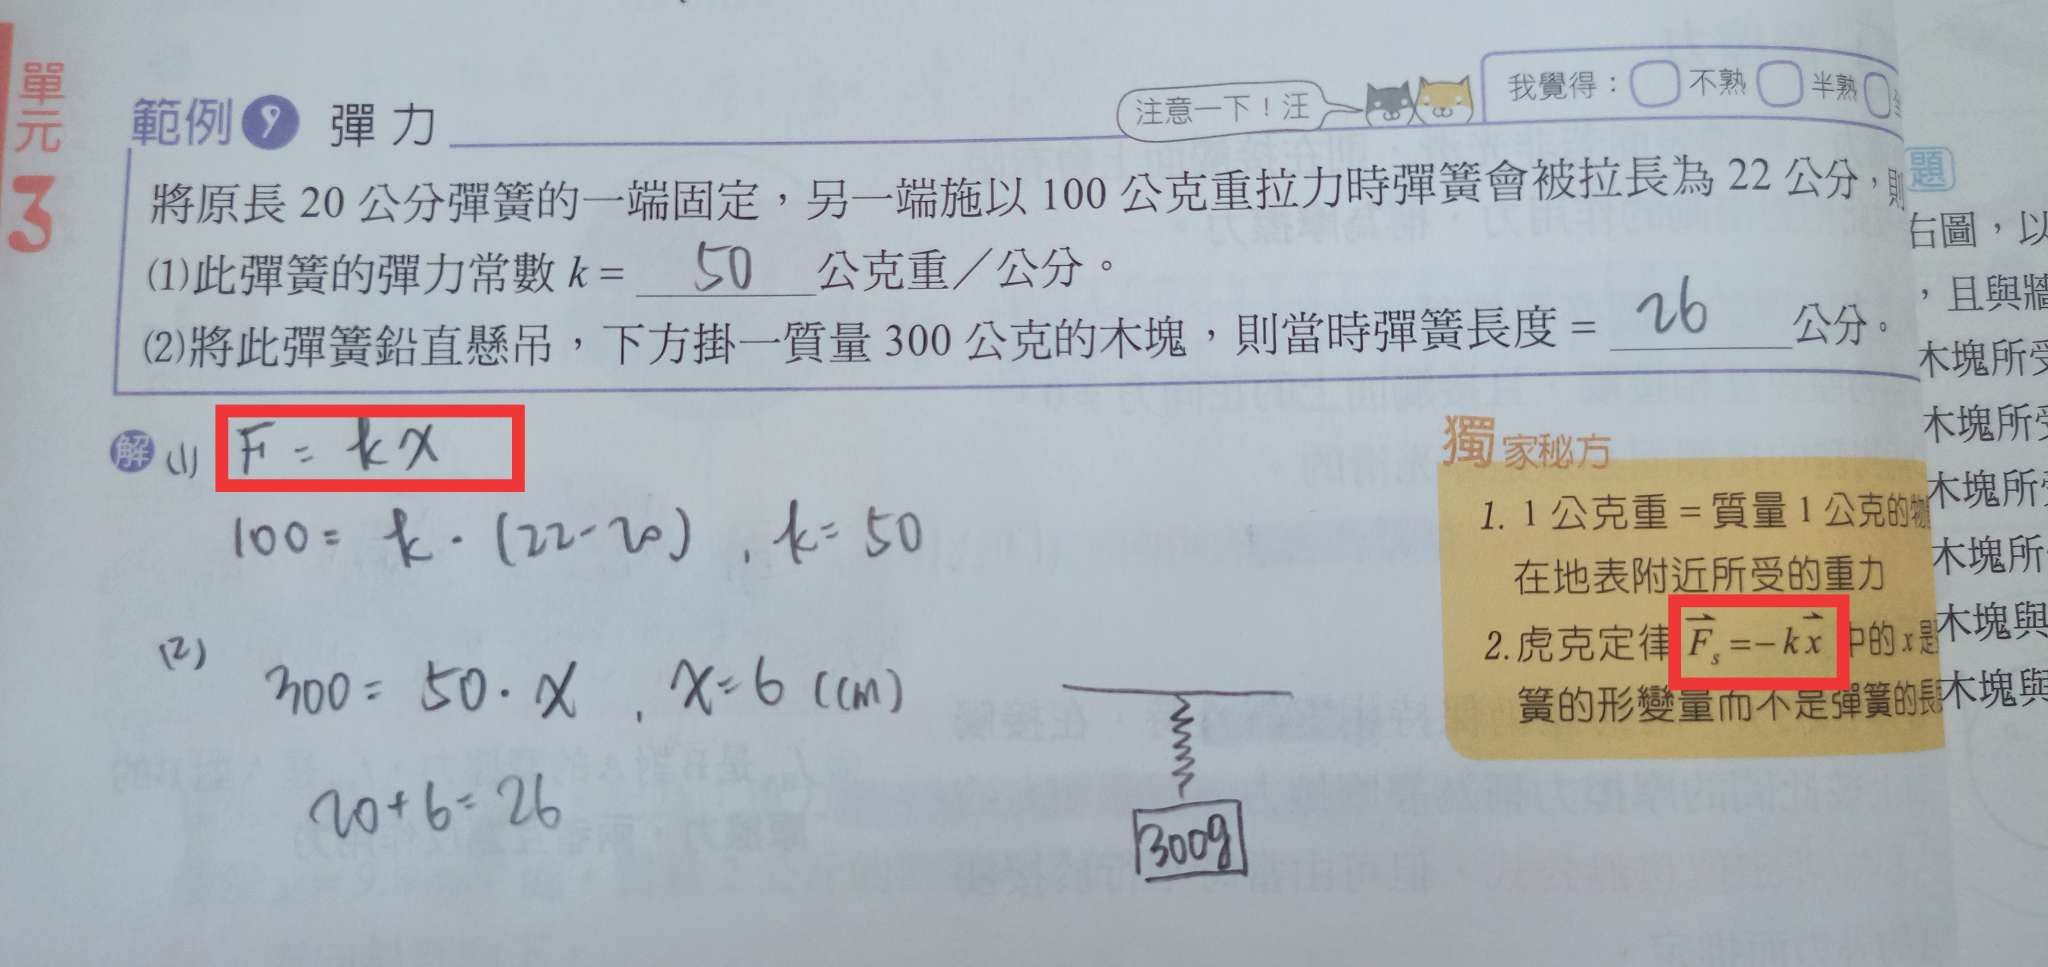 單元
3
範例 9 彈力
注意一下！汪
我覺得： 不熟 半熟
將原長 20 公分彈簧的一端固定，另一端施以 100 公克重拉力時彈簧會被拉長為 22 公分，則
(1)此彈簧的彈力常數 k = 50 公克重／公分。
(2)將此彈簧鉛直懸吊，下方掛一質量 300 公克的木塊，則當時彈簧長度 = 26 公分。
解 (1) F = kx
100 = k · (22-20) , k = 50
(2) 300 = 50 · x , x = 6 (cm)
20+6=26
300g
獨家秘方
1. 1 公克重 = 質量 1 公克的物
在地表附近所受的重力
2. 虎克定律 F⃗s = −k x⃗ 中的 x 是
簧的形變量而不是彈簧的長
題
右圖，以
，且與牆
木塊所受
木塊所受
木塊所受
木塊所
木塊與
木塊與